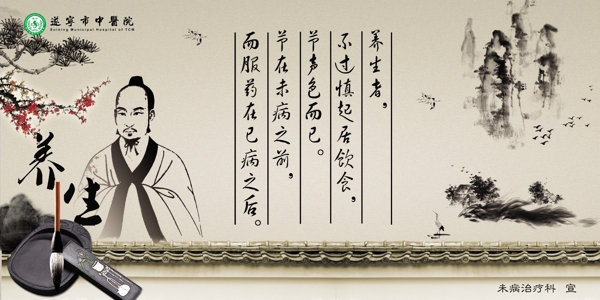 遂宁市中醫院
Suining Municipal Hospital of TCM
养生
养生者，
不过慎起居饮食，
节声色而已。
节在未病之前，
而服药在已病之后。
未病治疗科 宣